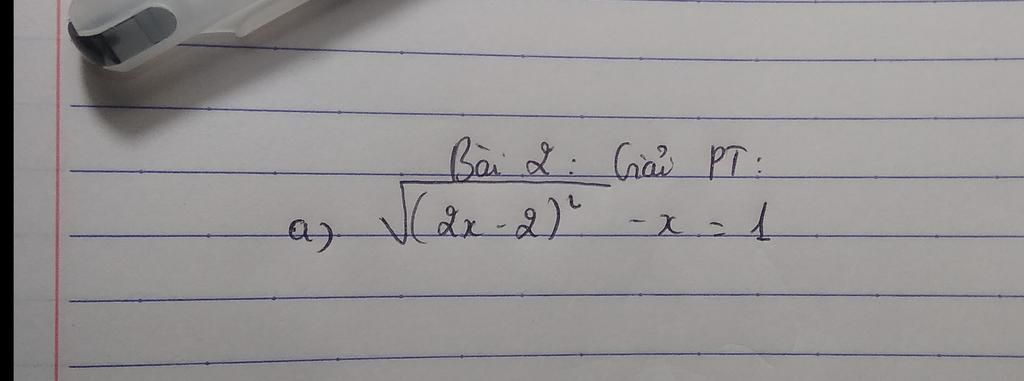 Bài 2: Giải PT:
a) √(2x-2)² - x = 1